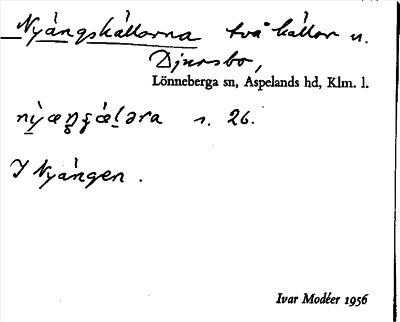 Nyängskällorna två källor n.
Djursbo,
Lönneberga sn, Aspelands hd, Klm. l.
s. 26.
I Nyängen.
Ivar Modéer 1956